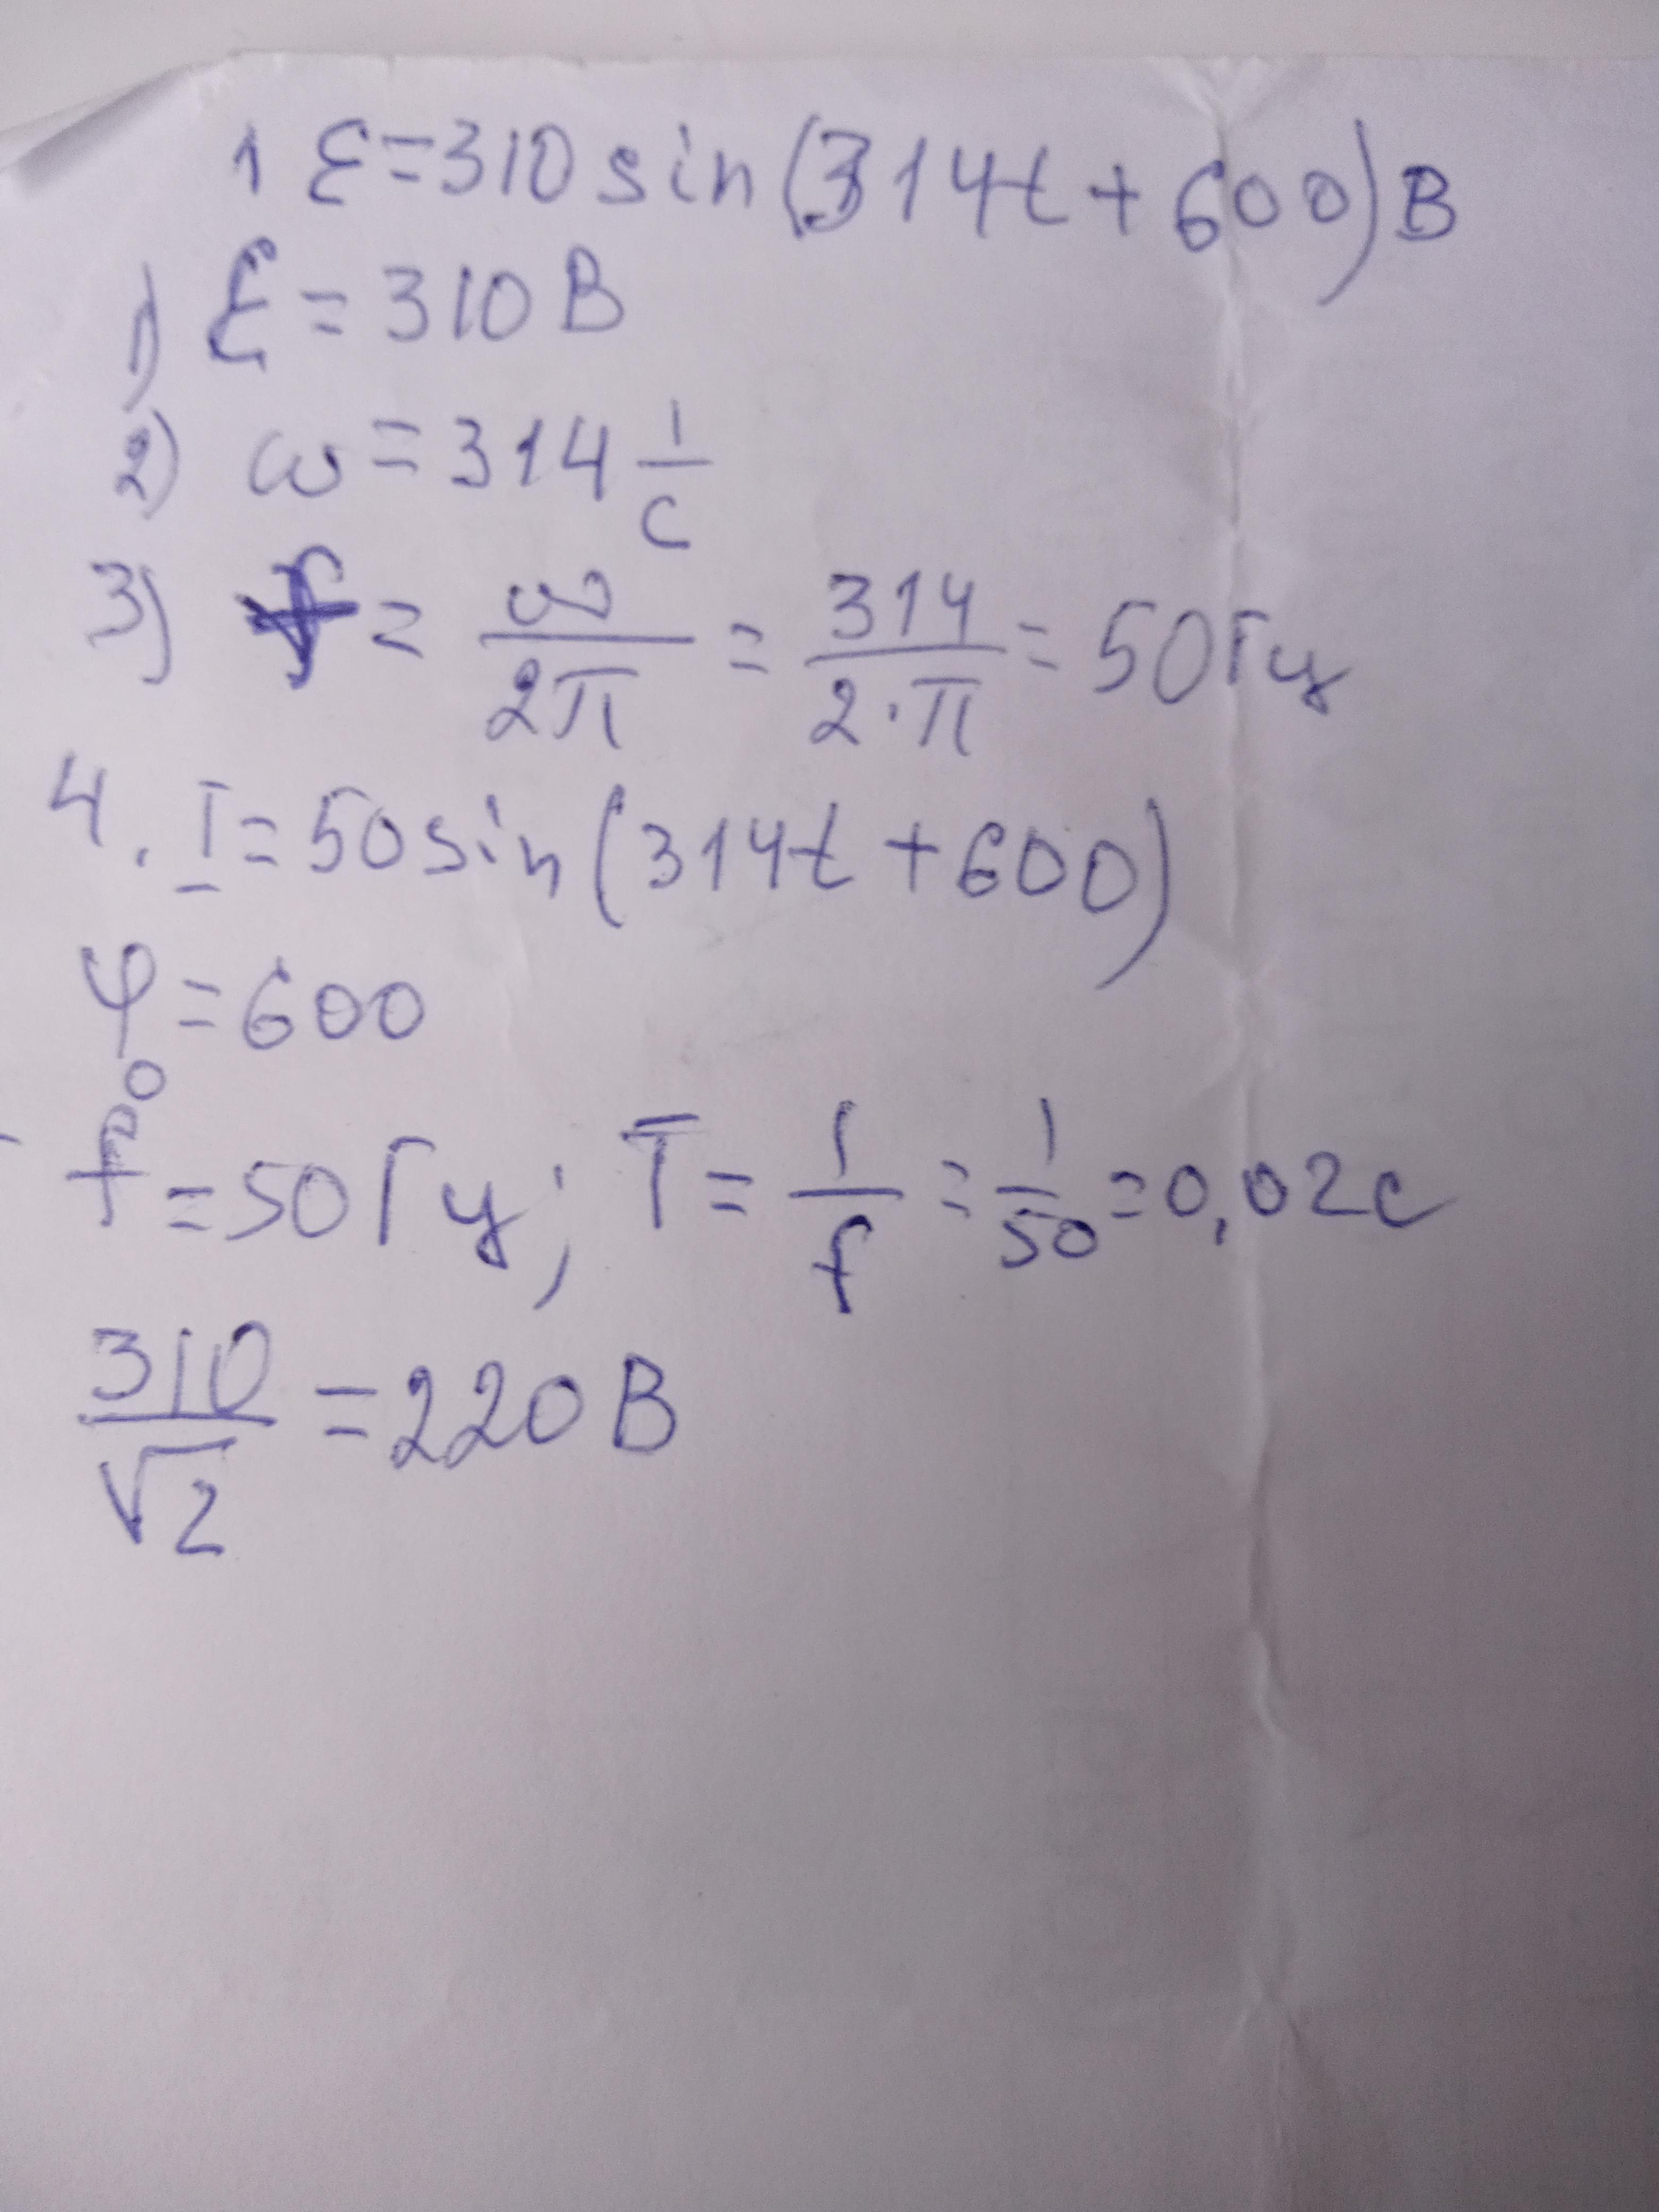 1 Ɛ=310 sin(314t+600)В
1) Ɛ=310В
2) ω=314 1/с
3) f= ω/2π = 314/2·π = 50Гц
4. I=50sin(314t+600)
φ₀=600
f=50Гц; T= 1/f = 1/50 =0,02с
310/√2 =220В